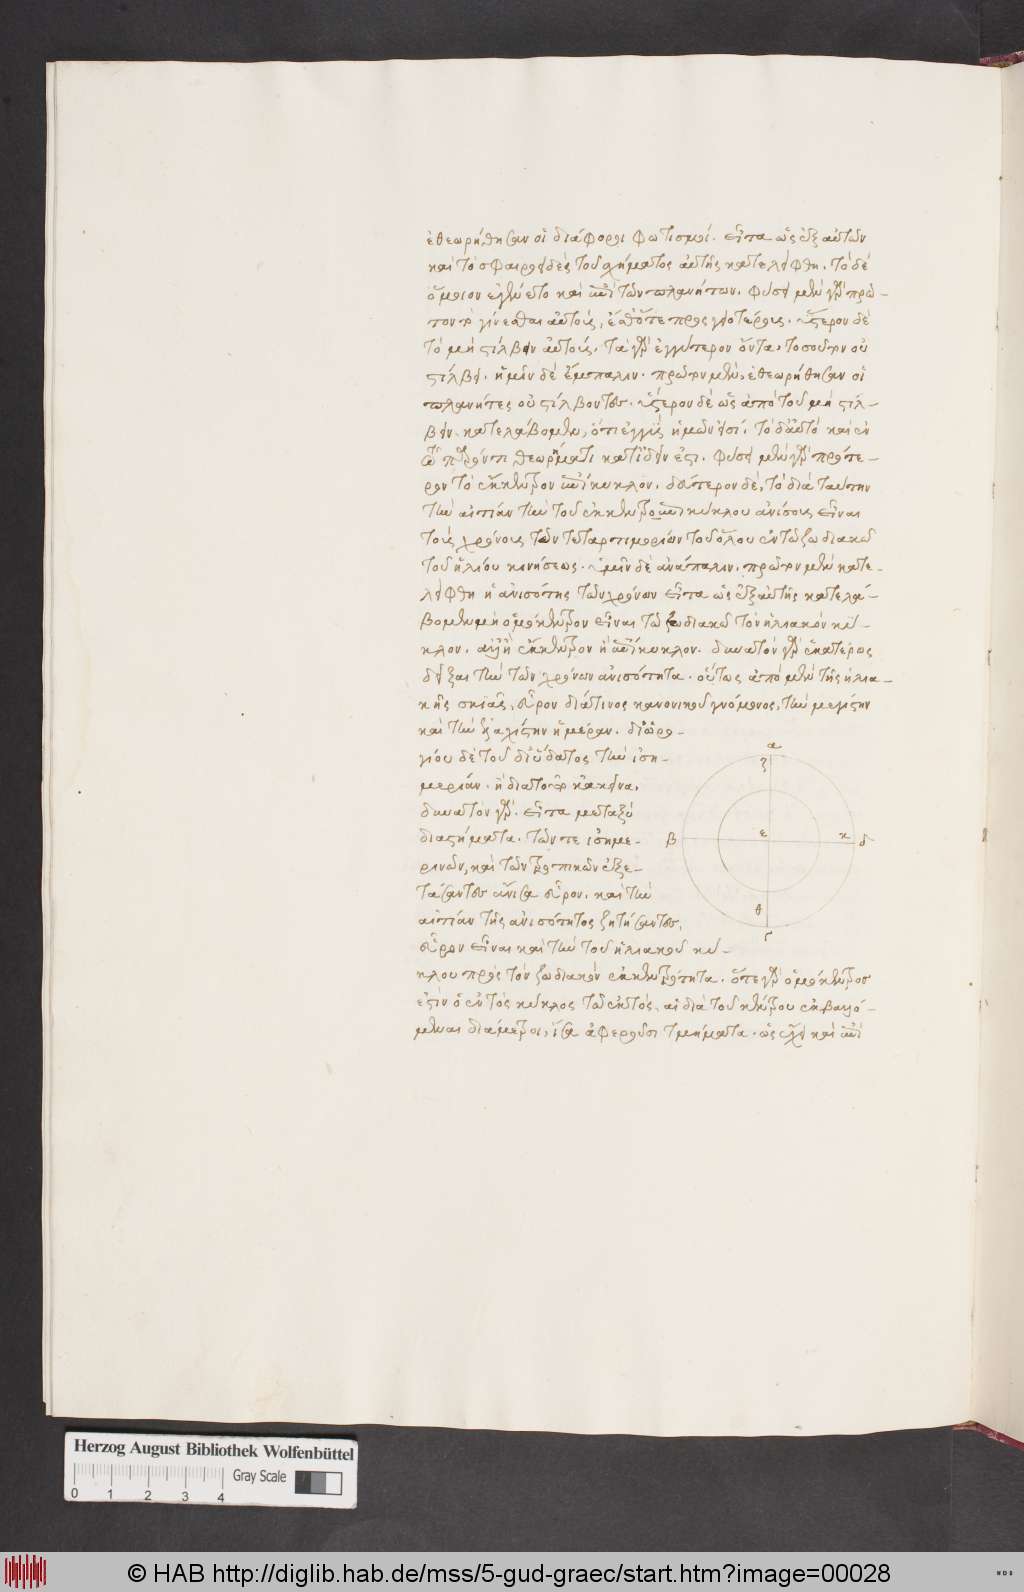 ἐθεωρήθησαν οἱ διάφοροι φωτισμοί. εἶτα ὡς ἐξ αὐτῶν
καὶ τὸ σφαιροειδὲς τοῦ σχήματος αὐτῆς κατελήφθη. τὸ δὲ
ὅμοιον ἐγένετο καὶ ἐπὶ τῶν πλανήτων. φύσει μὲν γὰρ πρῶ-
τον τὸ γίνεσθαι αὐτοὺς, προσγειοτέρους. ὕστερον δὲ
τὸ μὴ στίλβειν αὐτούς. τὰ γὰρ ἐγγύτερον ὄντα, τοσοῦτον οὐ
στίλβει. ἡμῖν δὲ ἔμπαλιν. πρῶτον μὲν, ἐθεωρήθησαν οἱ
πλανήτες οὐ στίλβοντες. ὕστερον δὲ ὡς ἀπὸ τοῦ μὴ στίλ-
βειν κατελάβομεν, ὅτι ἐγγὺς ἡμῶν εἰσί. τὸ δ' αὐτὸ καὶ ἐν
τῷ παρόντι θεωρήματι κατιδεῖν ἐστι. φύσει μὲν γὰρ πρότε-
ρον τὸ ἔκκεντρον ἢ ἐπίκυκλον. δεύτερον δὲ, τὸ διὰ ταύτην
τὴν αἰτίαν τὴν τοῦ ἐκκέντρου ἢ ἐπικύκλου ἀνίσους εἶναι
τοὺς χρόνους τῶν τεταρτημορίων τοῦ ὅλου ἐν τῷ ζωδιακῷ
τοῦ ἡλίου κινήσεως. ἡμῖν δὲ ἀνάπαλιν. πρῶτον μὲν κατε-
λήφθη ἡ ἀνισότης τῶν χρόνων εἶτα ὡς ἐξ αὐτῆς κατελά-
βομεν μὴ ὁμόκεντρον εἶναι τῷ ζωδιακῷ τὸν ἡλιακὸν κύ-
κλον. ἀλλ' ἢ ἔκκεντρον ἢ ἐπίκυκλον. δυνατὸν γὰρ ἑκατέρως
δεῖξαι τὴν τῶν χρόνων ἀνισότητα. οὕτως ἀπὸ μὲν τῆς ἡλια-
κῆς σκιᾶς, εὗρον διά τινος κανονικοῦ γνώμονος, τὴν μεγίστην
καὶ τὴν ἐλαχίστην ἡμέραν. δι' ὡρο-
γίου δὲ τοῦ δι' ὕδατος τὴν ἰση-
μερίαν. ἢ διὰ τὸ κἀκεῖνα.
δυνατὸν γάρ. εἶτα μεταξὺ
διαστήματα. τῶν τε ἰσημε-
ρινῶν, καὶ τῶν τροπικῶν ἐξε-
τάσαντες ἄνισα εὗρον. καὶ τὴν
αἰτίαν τῆς ἀνισότητος ζητήσαντες,
εὗρον εἶναι καὶ τὴν τοῦ ἡλιακοῦ κύ-
κλου πρὸς τὸν ζωδιακὸν ἐκκεντρότητα. ὅτε γὰρ ὁμόκεντρος
ἐστὶν ὁ ἐντὸς κύκλος τῷ ἐκτὸς, αἱ διὰ τοῦ κέντρου ἐκβαλλό-
μεναι διάμετροι, ἴσα ἀφεροῦσι τμήματα. ὡς ἔχει καὶ ἐπὶ
α
ζ
β
ε
κ
δ
θ
γ
Herzog August Bibliothek Wolfenbüttel
Gray Scale
0 1 2 3 4
© HAB http://diglib.hab.de/mss/5-gud-graec/start.htm?image=00028